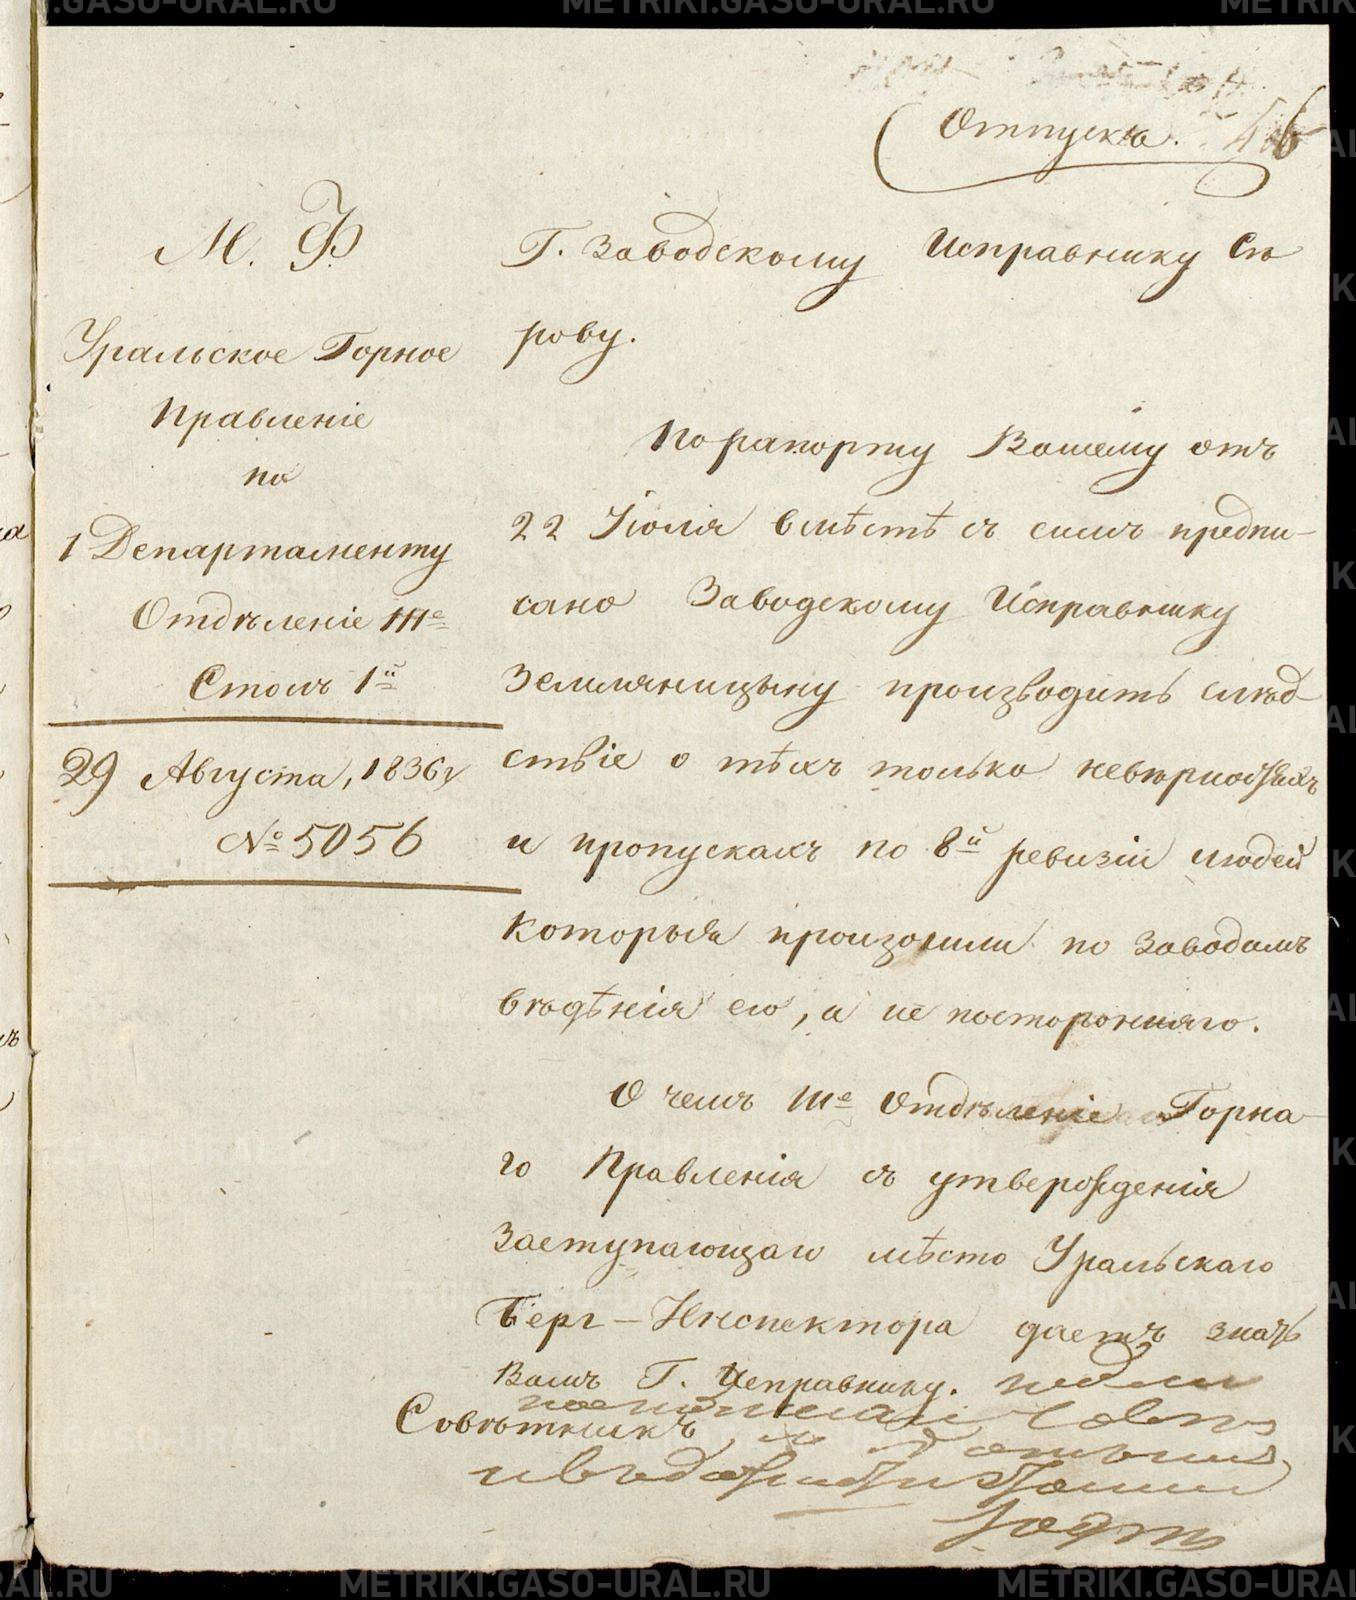 Отпускъ.
М. Ф.
Уральское Горное
Правленіе
по
1 Департаменту
Отдѣленіе III е
Столъ 1 й
29 Августа, 1836 г
№ 5056
Г. Заводскому Исправнику Сю
рову.
По рапорту Вашему отъ
22 Іюля вмѣстѣ съ симъ предпи-
сано Заводскому Исправнику
Земляницыну производить слѣд-
ствіе о тѣхъ только невѣрностяхъ
и пропускахъ по 8 й ревизіи людей
которыя произошли по заводамъ
вѣдѣнія его, а не посторонняго.
О чемъ III е Отдѣленіе Горна-
го Правленія съ утвержденія
Заступающаго мѣсто Уральскаго
Бергъ-Инспектора даетъ знать
Вамъ Г. Исправнику.
Совѣтникъ
METRIKI.GASO-URAL.RU